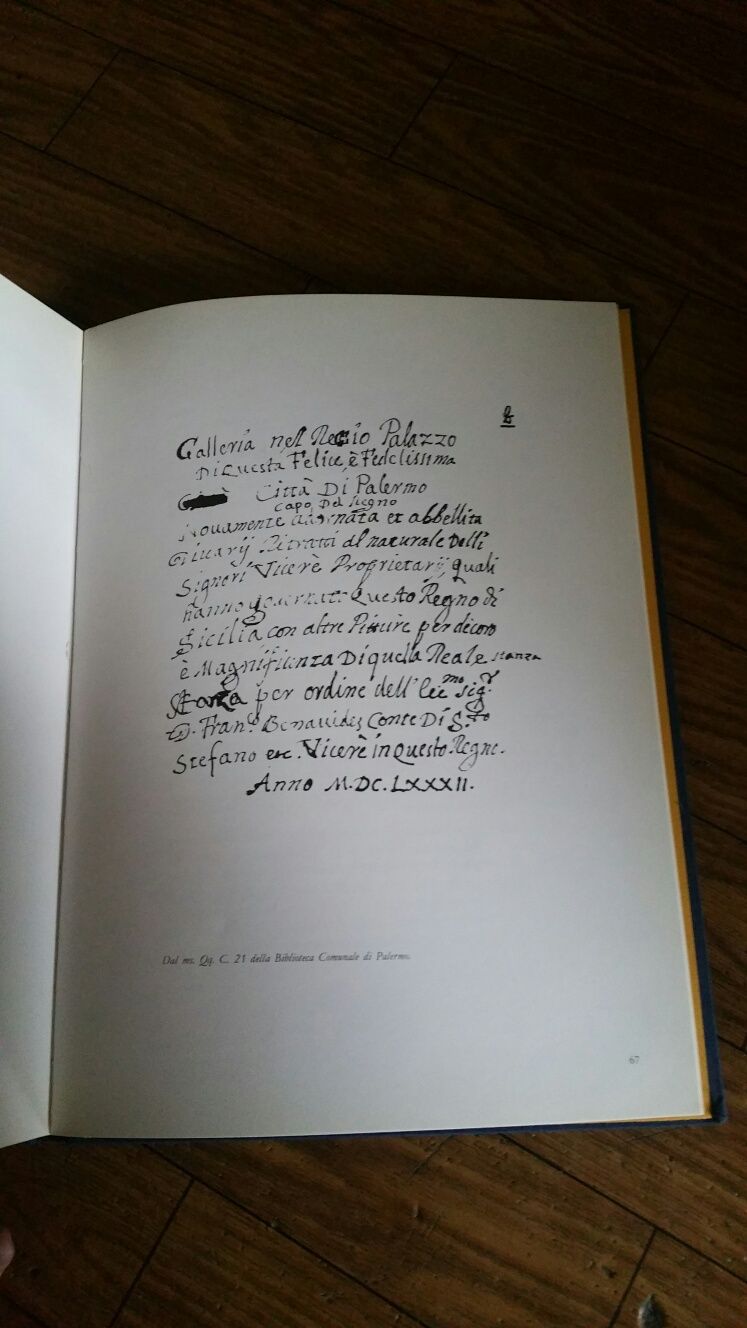 Galleria nel Regio Palazzo
Di Questa Felice, è Fedelissima
Città Di Palermo
capo Del Regno
Novamente adornata et abbellita
Ritratti al naturale Delli
Signori Vicerè Proprietarij quali
hanno governato Questo Regno di
Sicilia con altre Pitture per decoro
è Magnificenza Di quella Reale stanza
per ordine dell' sig.r
D. Fran.co Benavides Conte Di S.to
Stefano etc. Vicerè in Questo Regno.
Anno M.DC.LXXXII.
Dal ms. Qq. C. 21 della Biblioteca Comunale di Palermo.
67